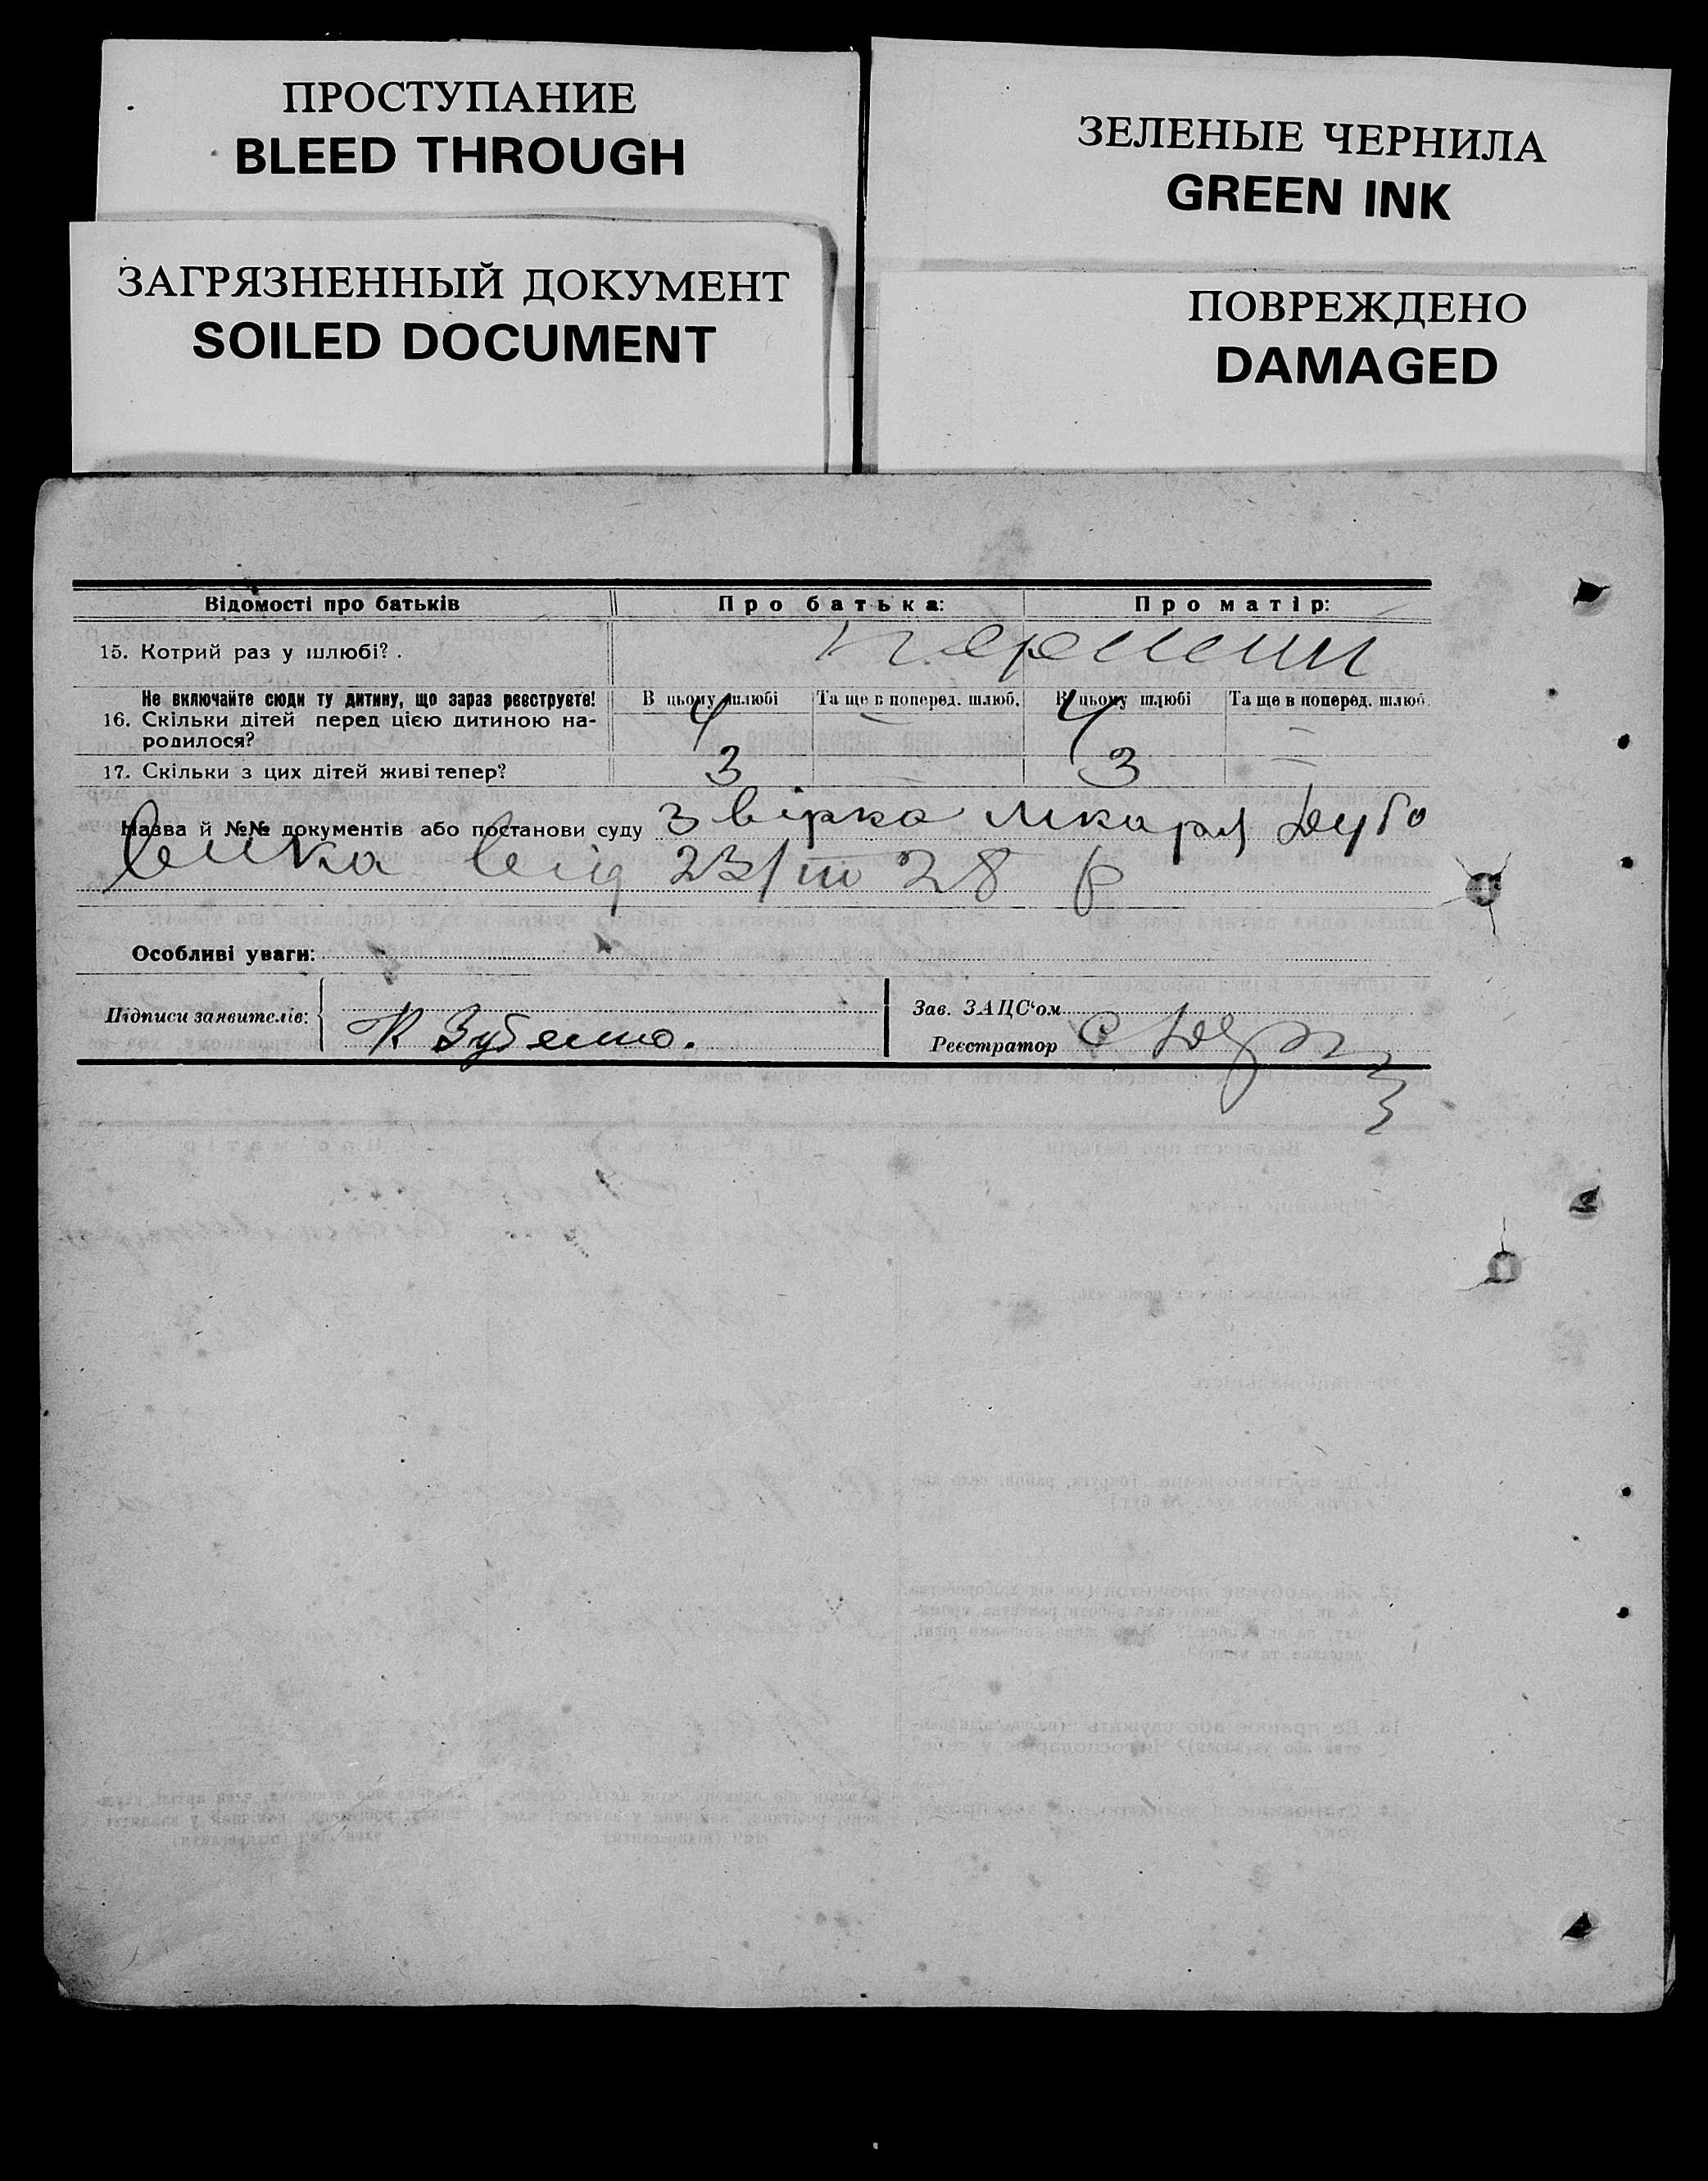 ПРОСТУПАНИЕ
BLEED THROUGH
ЗЕЛЕНЫЕ ЧЕРНИЛА
GREEN INK
ЗАГРЯЗНЕННЫЙ ДОКУМЕНТ
SOILED DOCUMENT
ПОВРЕЖДЕНО
DAMAGED
Відомості про батьків Про батька: Про матір:
15. Котрий раз у шлюбі? . перший
Не включайте сюди ту дитину, що зараз реєструєте! В цьому шлюбі Та ще в поперед. шлюб. В цьому шлюбі Та ще в поперед. шлюб.
16. Скільки дітей перед цією дитиною на- 4 — 4 —
родилося?
17. Скільки з цих дітей живі тепер? 3 — 3 —
Назва й №№ документів або постанови суду звірка лікаря Дубо
вика від 23/III 28 р
Особливі уваги:
Підписи заявителів: К Зубенко.
Зав. ЗАЦС'ом
Реєстратор